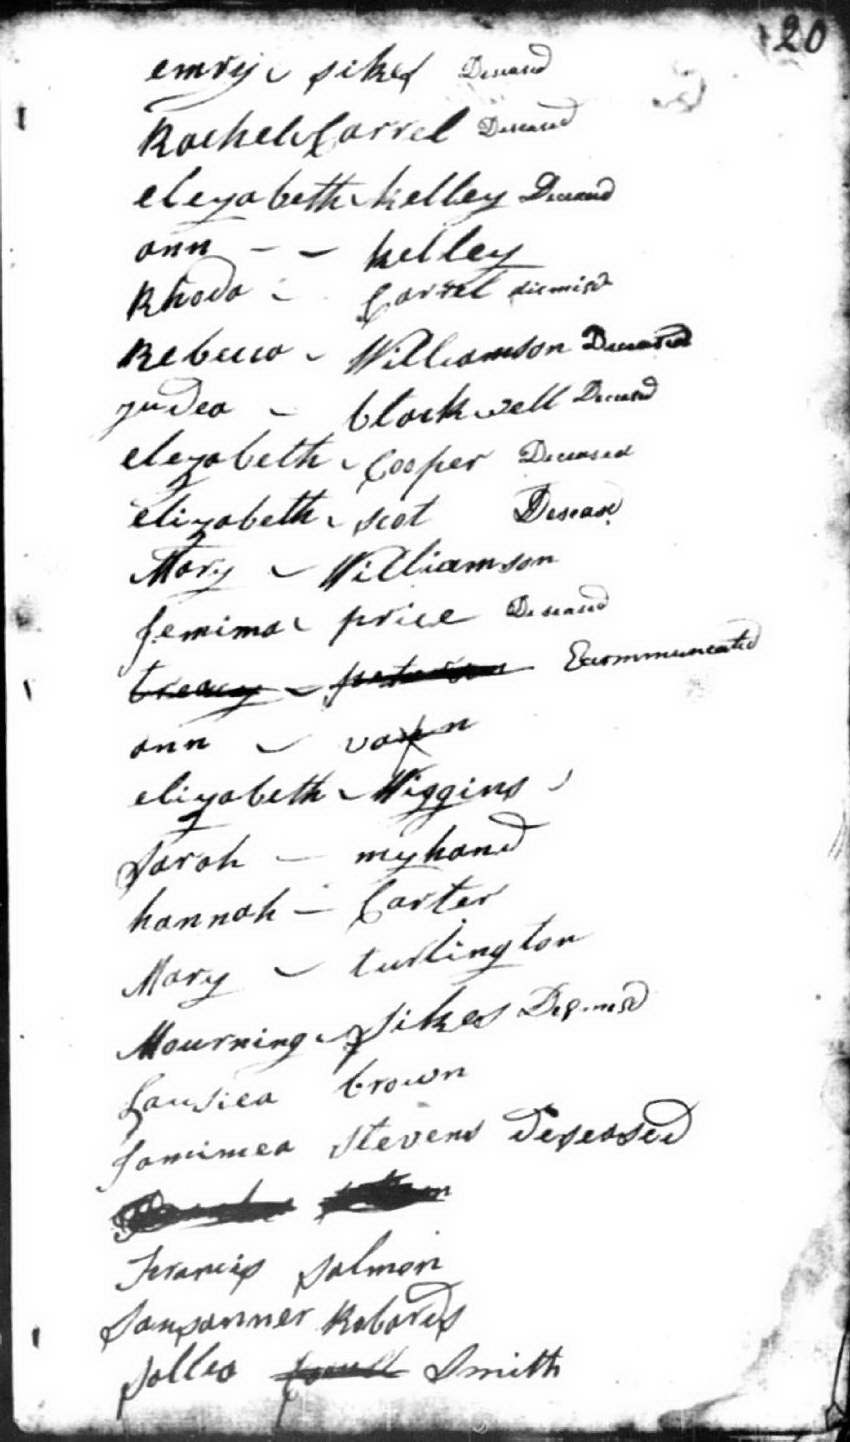 20
emry sikes Deseased
Rachel Carrel Deseased
elezabeth kelley Deceasd
ann - - kelley
Rhoda - Carrel dismisd
Rebecca - Williamson Deceased
judea - blackwell Deceased
elezabeth Cooper Deceased
elizabeth scot Desease
Mary - Williamson
jemima price Deseased
treacy - Excommuneated
ann - vann
elizabeth Wiggins
Sarah - myhand
hannah - Carter
Mary - turlington
Mourning Sikes Dismisd
brown
Jamimea Stevens Deseased
Francis Salmon
Sausanner Robards
Sallea Smith